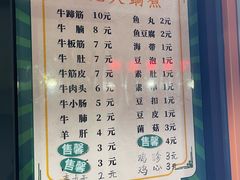 火鍋煮
牛蹄筋 10元
牛腩 8元
牛板筋 7元
牛肚 7元
牛筋皮 7元
牛肉头 6元
牛小肠 6元
牛肺 5元
羊肝 4元
售馨 3元
售馨 3元
2元
鱼丸 2元
鱼豆腐 2元
海带 1元
豆泡 1元
素肚 1元
素扣 1元
豆皮 1元
菌菇 3元
售馨 4元
鸡胗 3元
鸡心 3元